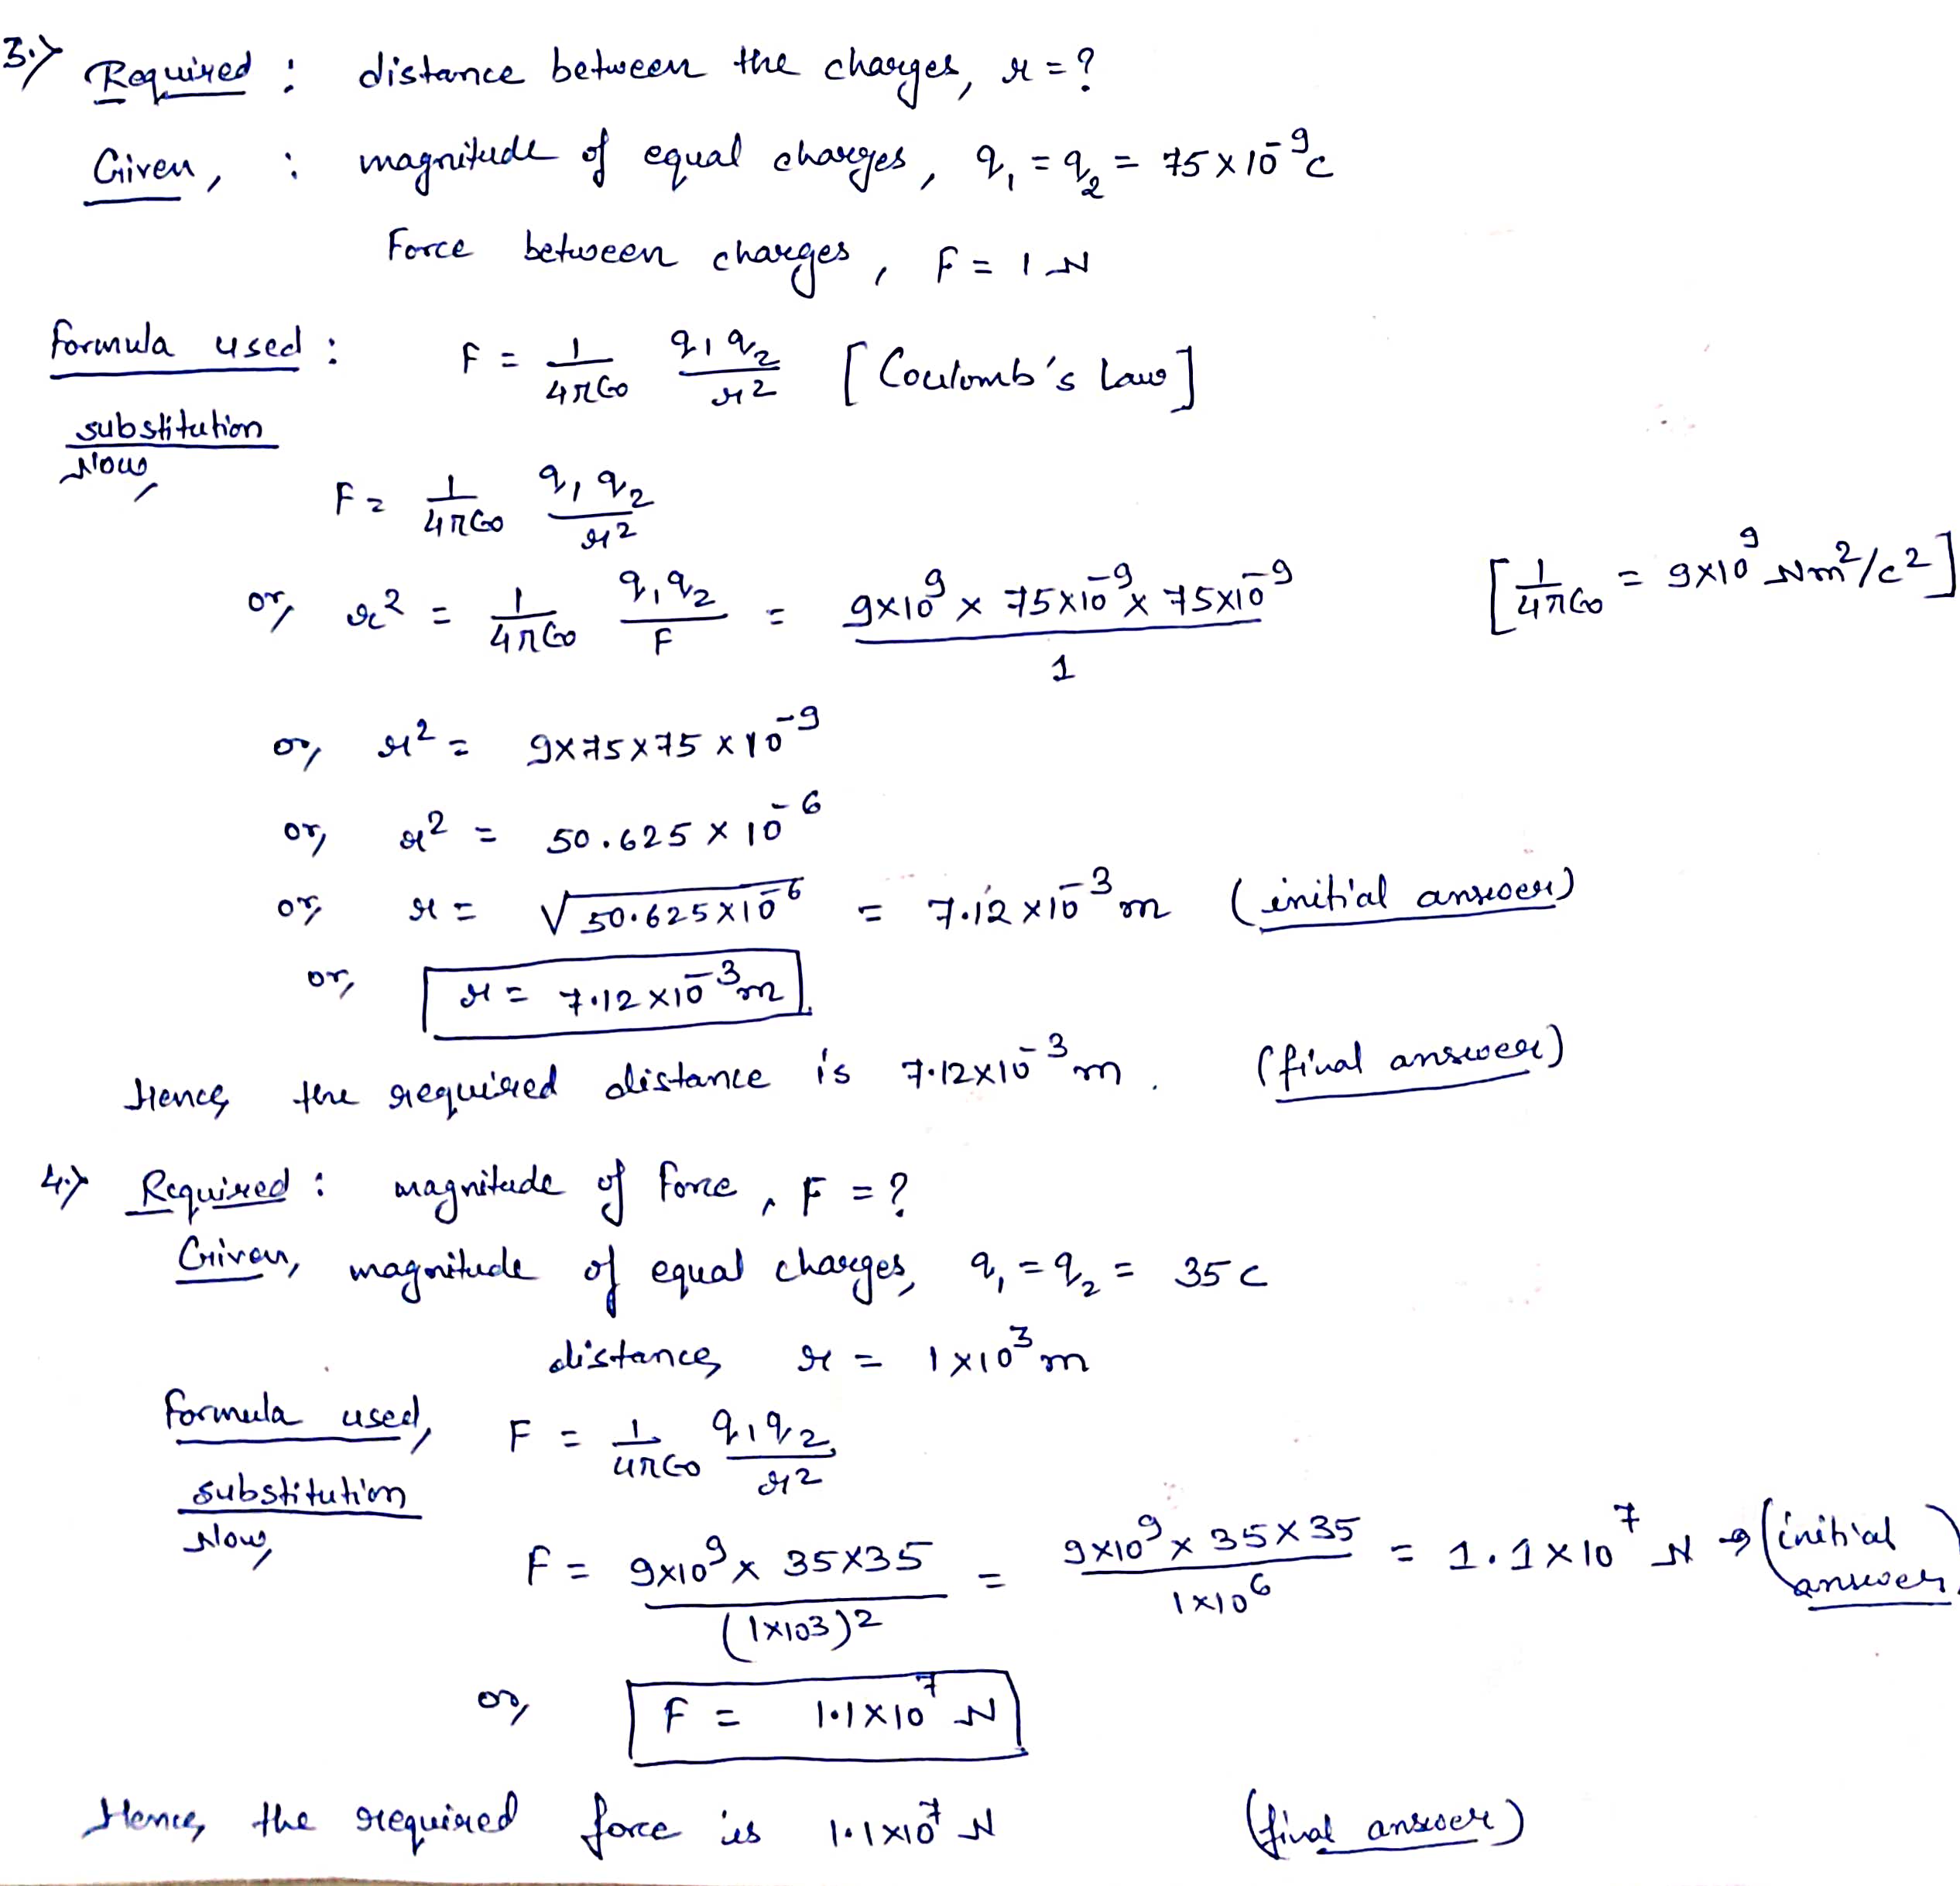 3.> Required : distance between the charges, r = ?
Given, : magnitude of equal charges, q₁ = q₂ = 75 × 10⁻⁹ C
Force between charges, F = 1 N
Formula used : F = 1/4π∈₀ q₁q₂/r² [Coulomb's Law]
substitution
Now, F = 1/4π∈₀ q₁q₂/r²
or, r² = 1/4π∈₀ q₁q₂/F = 9×10⁹ × 75×10⁻⁹ × 75×10⁻⁹/1 [1/4π∈₀ = 9×10⁹ Nm²/c²]
or, r² = 9×75×75 × 10⁻⁹
or, r² = 50.625 × 10⁻⁶
or, r = √50.625×10⁻⁶ = 7.12 × 10⁻³ m (initial answer)
or, r = 7.12 × 10⁻³ m
Hence, the required distance is 7.12×10⁻³ m. (final answer)
4.> Required : magnitude of Force, F = ?
Given, magnitude of equal charges, q₁ = q₂ = 35 C
distance, r = 1×10³ m
Formula used, F = 1/4π∈₀ q₁q₂/r²
substitution
Now, F = 9×10⁹ × 35×35/(1×10³)² = 9×10⁹ × 35×35/1×10⁶ = 1.1×10⁷ N → (initial answer)
or, F = 1.1×10⁷ N
Hence, the required force is 1.1×10⁷ N (final answer)